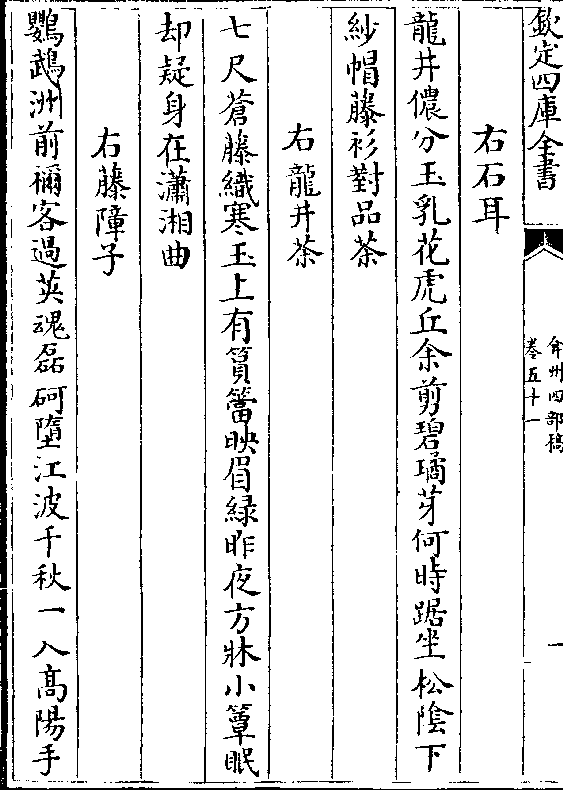 欽定四庫全書
弇州四部稿
卷五十一
一
右石耳
龍井儂分玉乳花虎丘余剪碧璚芽何時踞坐松陰下
紗帽藤衫對品茶
右龍井茶
七尺蒼藤織寒玉上有篔簹映眉緑昨夜方牀小簟眠
却疑身在瀟湘曲
右藤障子
鸚鵡洲前禰客過英魂磊砢墮江波千秋一入髙陽手